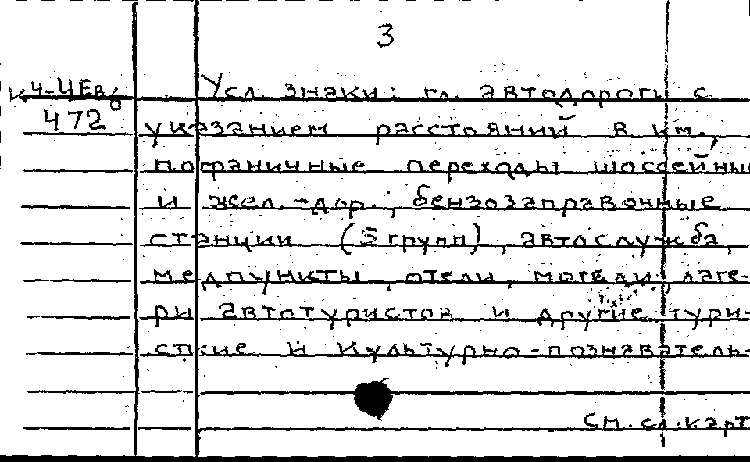 3
К 4-4Ев6
472
Усл. знаки: гл. автодороги с
указанием расстояний в км.,
пограничные переходы шоссейные
и жел.-дор., бензозаправочные
станции (3 групп), автослужба,
медпункты, отели, мотели, лаге-
ри автотуристов и другие тури-
стские и культурно-познаватель-
см. сл. карт